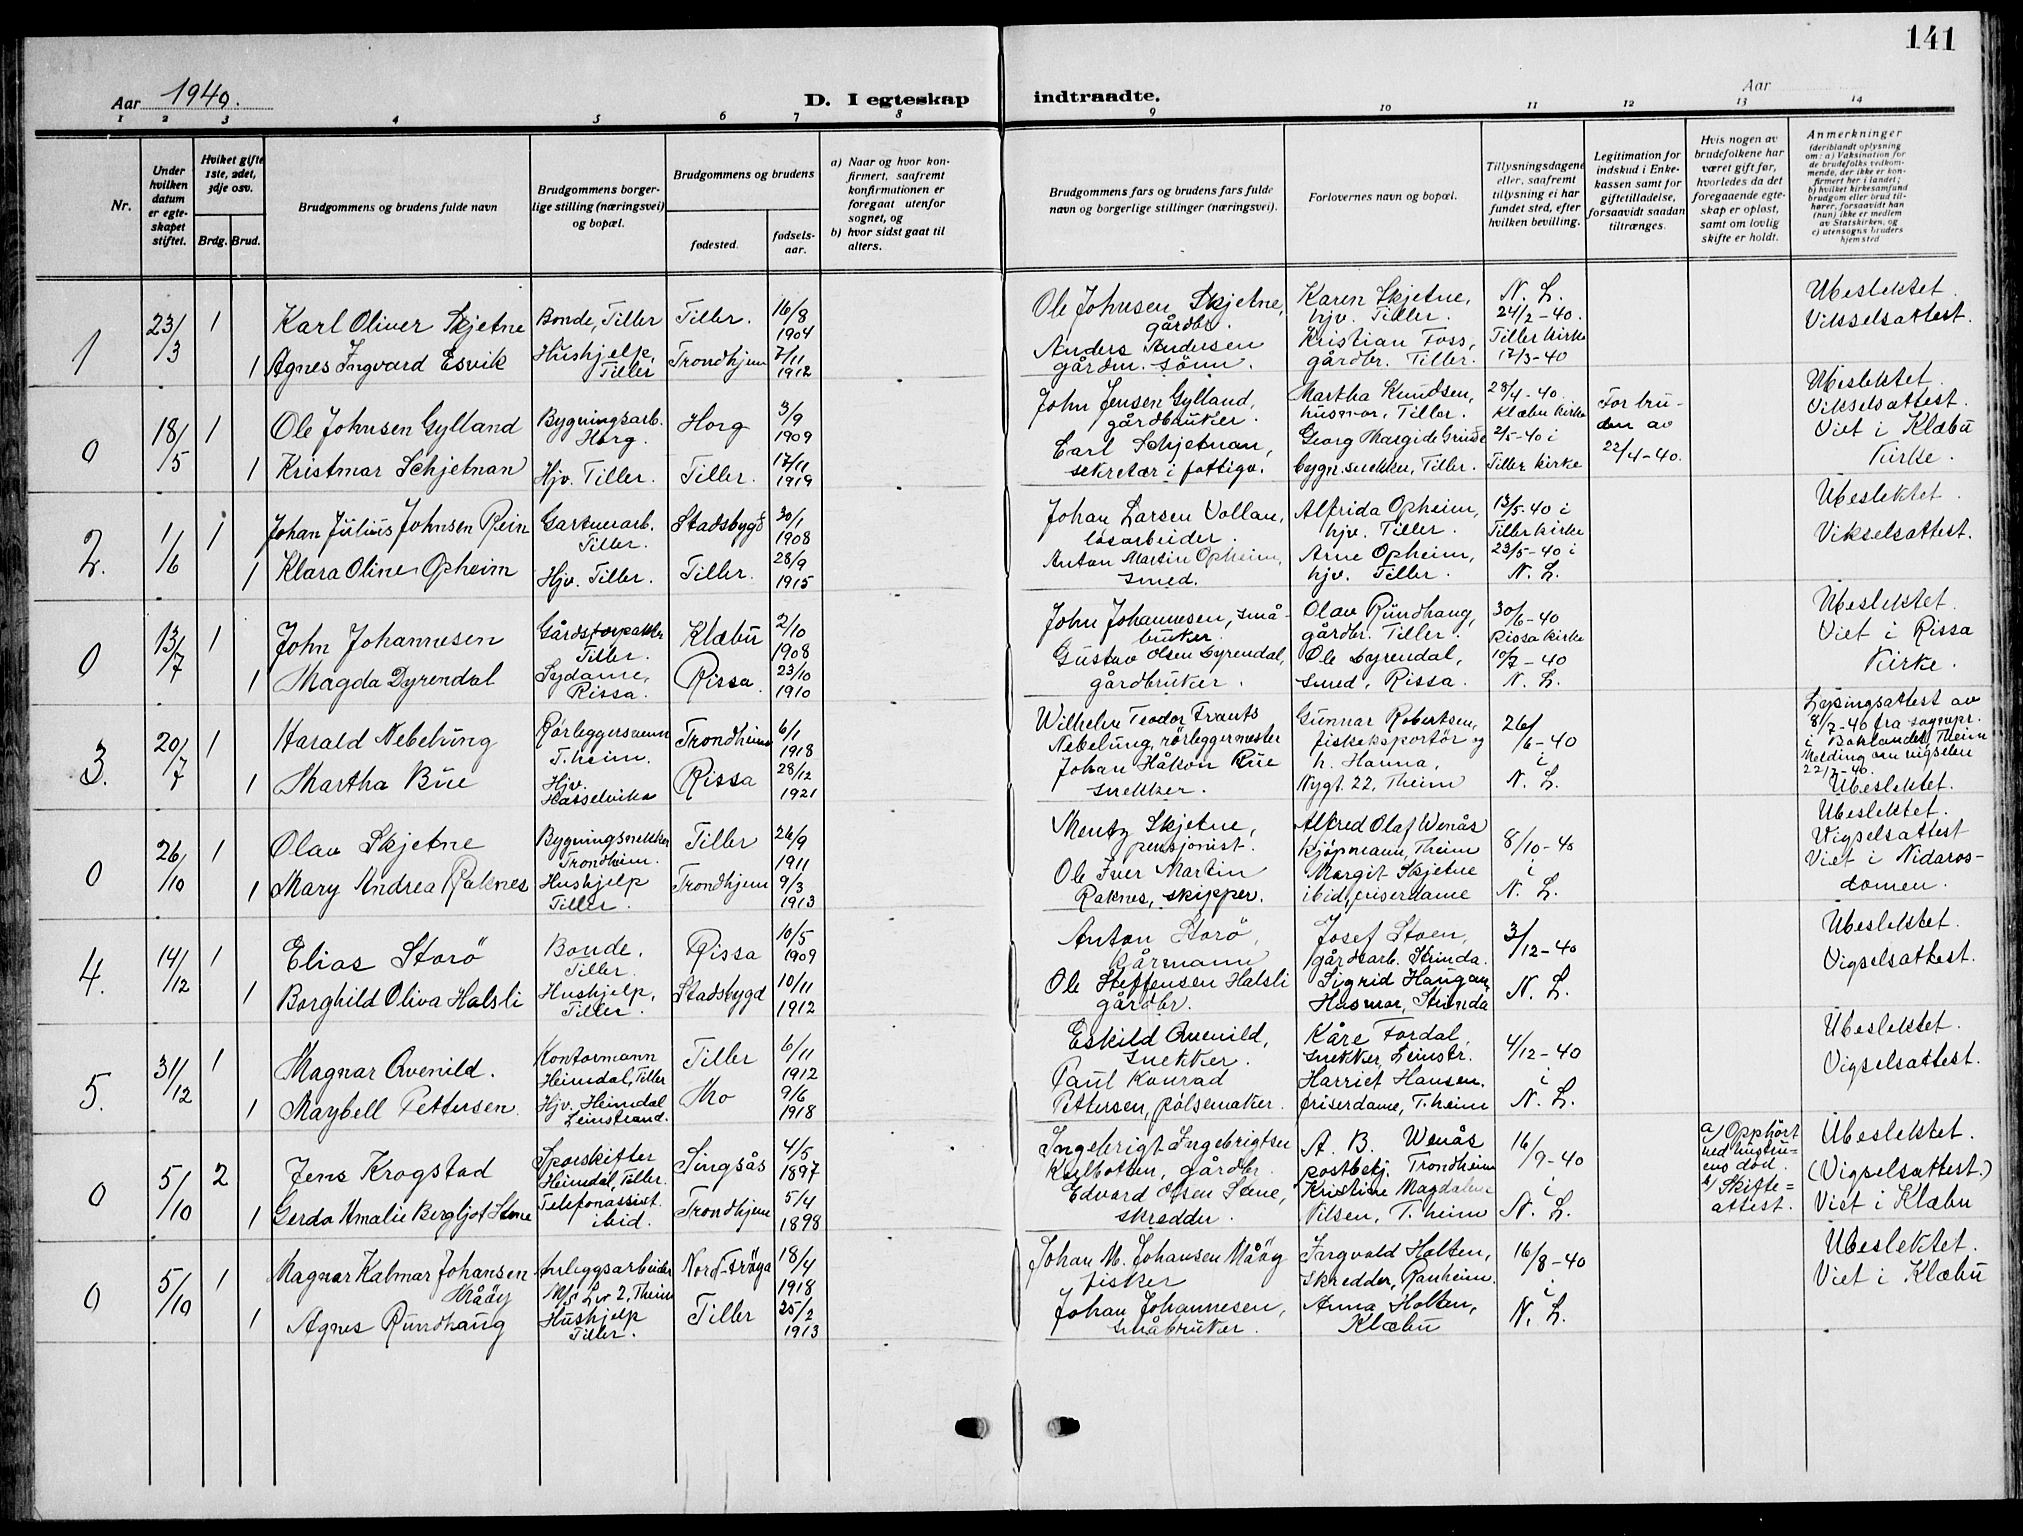 141
Aar 1940.
D. I egteskap indtraadte.
Aar
1 2 3 4 5 6 7 8 9 10 11 12 13 14
Nr.
Under hvilken datum er egteskapet stiftet.
Hvilket gifte 1ste, 2det, 3dje osv.
Brdg. Brud.
Brudgommens og brudens fulde navn
Brudgommens borgerlige stilling (næringsvei) og bopæl.
Brudgommens og brudens
fødested.
fødselsaar.
a) Naar og hvor konfirmert, saafremt konfirmationen er foregaat utenfor sognet, og
b) hvor sidst gaat til alters.
Brudgommens fars og brudens fars fulde navn og borgerlige stillinger (næringsvei).
Forlovernes navn og bopæl.
Tillysningsdagene eller, saafremt tillysning ei har fundet sted, efter hvilken bevilling.
Legitimation for indskud i Enkekassen samt for giftetilladelse, forsaavidt saadan tiltrænges.
Hvis nogen av brudefolkene har været gift før, hvorledes da det foregaaende egteskap er opløst, samt om lovlig skifte er holdt.
Anmerkninger (deriblandt oplysning om: a) Vaksination for de brudefolks vedkommende, der ikke er konfirmert her i landet; b) hvilket kirkesamfund brudgom eller brud tilhører, forsaavidt han (hun) ikke er medlem av Statskirken, og c) utensogns bruders hjemsted
1 23/3 1 Karl Oliver Skjetne Bonde, Tiller Tiller. 16/8 1904 Ole Johnsen Skjetne, gårdbr. Karen Skjetne, hjv. Tiller. N. L. 24/2-40. Ubeslektet. Vikselsattest.
1 Agnes Ingvard Esvik Hushjelp, Tiller Trondhjem 7/11 1912 Anders Andersen gårdm. sønn. Kristian Foss, gårdbr. Tiller. Tiller kirke 17/3-40
0 18/5 1 Ole Johnsen Gylland Bygningsarb. Horg. Horg 3/9 1909 John Jensen Gylland, gårdbruker. Martha Knudsen, husmor, Tiller. 28/4-40. Klæbu kirke For bruden av 22/4-40. Ubeslektet. Vikselsattest. Viet i Klæbu Kirke.
1 Kristmar Schjetnan Hjv. Tiller. Tiller. 17/11 1919 Carl Schjetnan, sekretær i fattigv. Georg bygn.snekker, Tiller. 2/5-40 i Tiller kirke
2. 1/6 1 Johan Julius Johnsen Rein Gartnerarb. Tiller. Stadsbygd 30/1 1908 Johan Larsen Vollan, løsarbeider. Alfrida Opheim, hjv. Tiller. 13/5-40 i Tiller kirke Ubeslektet. Vikselsattest.
1 Klara Oline Opheim Hjv. Tiller. Tiller. 28/9 1915 Anton Martin Opheim, smed. Arne Opheim, hjv. Tiller. 23/5-40 i N. L.
0 13/7 1 John Johannesen Gårdsforpakter Tiller. Klæbu 2/10 1908 John Johannesen, småbruker. Olav Rundhaug, gårdbr. Tiller. 30/6-40 Rissa kirke Ubeslektet. Viet i Rissa Kirke.
1 Magda Dyrendal Sydame, Rissa. Rissa. 23/10 1910 Gustav Olsen Dyrendal, gårdbruker. Ole Dyrendal, smed, Rissa. 10/7-40 N. L.
3. 20/7 1 Harald Nebelung Rørleggersvenn T.heim. Trondheim 6/1 1918 Wilhelm Teodor Frants Nebelung, rörleggermester Gunnar Robertsen, fiskeksportör og h. Hanna, Nygt. 22, Theim 26/6-40 i N. L. Løsingsattest av 8/7-40 fra sognepr. i Baklandet, Theim Melding om vigselen 22/7-40. Ubeslektet.
1 Martha Bue Hjv. Hasselvika Rissa 28/12 1921 Johan Håkon Bue snekker.
0 26/10 1 Olav Skjetne Bygningsnekker Trondheim. Tiller 26/9 1911 Mentz Skjetne, pensjonist. Alfred Olaf Wenås kjöpmann, Theim 8/10-40 i N. L. Ubeslektet. Vigselsattest Viet i Nidarosdomen.
1 Mary Andrea Raknes Hushjelp Tiller. Trondhjem 9/3 1913 Ole Iver Martin Raknes, skipper. Margit Skjetne ibid, friserdame
4. 14/12 1 Elias Storö Bonde, Tiller. Rissa 10/5 1909 Anton Storö, Kårmann Josef Stoen, gårdsarb. Strinda. 3/12-40 N. L. Ubeslektet. Vigselsattest.
1 Borghild Oliva Halsli Hushjelp, Tiller. Stadsbygd 10/11 1912 Ole Steffensen Halsli gårdbr. Sigrid Haugan, Husmor, Strinda
5. 31/12 1 Magnar Qvenild. Kontormann Heimdal, Tiller Tiller 6/11 1912 Eskild Qvenild, snekker. Kåre Fordal, snekker, Leinstr. 4/12-40 i N. L. Ubeslektet. Vigselsattest.
1 Maybell Pettersen. Hjv. Heimdal Leinstrand. Mo 9/6 1918 Paul Konrad Pettersen, pölsemaker. Harriet Hansen, friserdame, T.heim
0 5/10 2 Jens Krogstad Sporskifter Heimdal, Tiller. Singsås 4/5 1897 Ingebrigt Ingebrigtsen gårdbr. A. B. Wenås postbetj. Trondheim 16/9-40 i N. L. a) Opphört ved hustruens död. b) Skifteattest. Ubeslektet. (Vigselsattest.) Viet i Klæbu
1 Gerda Amalie Bergljot Stene Telefonassist. ibid. Trondhjem 5/4 1898 Edvard Olsen Stene, skredder. Kristine Magdalene Nilsen, T.heim
0 5/10 1 Magnar Kalmar Johansen Måöy Anleggsarbeider Theim Nord-Fröya 18/4 1918 Johan M. Johansen Måöy fisker Ingvald Holten, skredder, Ranheim. 16/8-40 i N. L. Ubeslektet. Viet i Klæbu
1 Agnes Rundhaug Hushjelp Tiller. Tiller 25/2 1913 Johan Johannesen, småbruker. Anna Holten, Klæbu